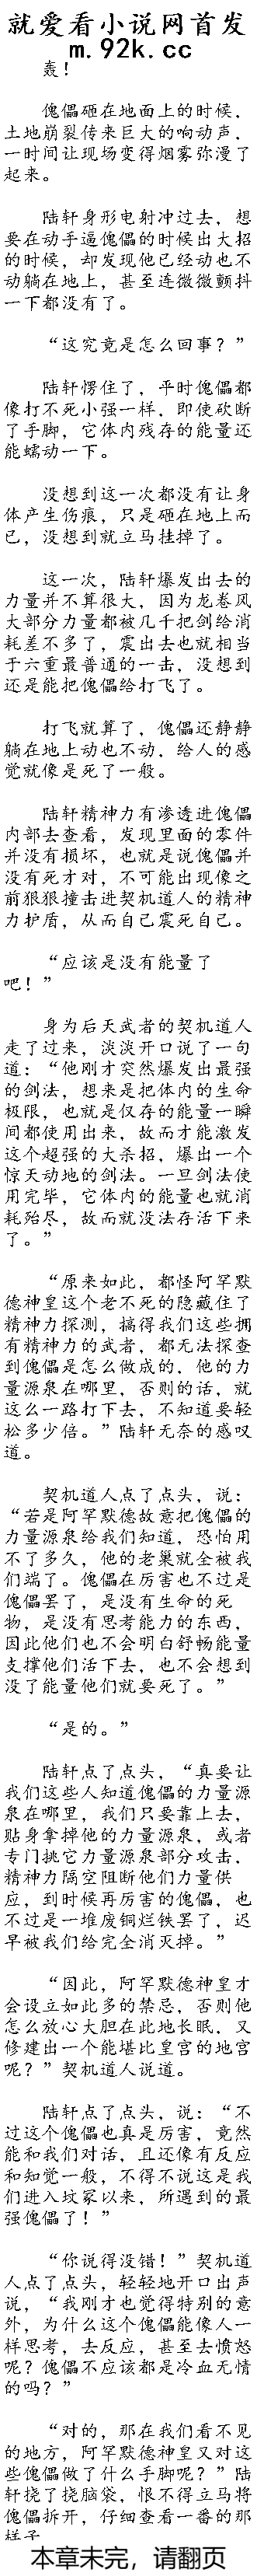 就爱看小说网首发
m.92k.cc
轰！
傀儡砸在地面上的时候，
土地崩裂传来巨大的响动声，
一时间让现场变得烟雾弥漫了
起来。
陆轩身形电射冲过去，想
要在动手逼傀儡的时候出大招
的时候，却发现他已经动也不
动躺在地上，甚至连微微颤抖
一下都没有了。
“这究竟是怎么回事？”
陆轩愣住了，平时傀儡都
像打不死小强一样，即使砍断
了手脚，它体内残存的能量还
能蠕动一下。
没想到这一次都没有让身
体产生伤痕，只是砸在地上而
已，没想到就立马挂掉了。
这一次，陆轩爆发出去的
力量并不算很大，因为龙卷风
大部分力量都被几千把剑给消
耗差不多了，震出去也就相当
于六重最普通的一击，没想到
还是能把傀儡给打飞了。
打飞就算了，傀儡还静静
躺在地上动也不动，给人的感
觉就像是死了一般。
陆轩精神力有渗透进傀儡
内部去查看，发现里面的零件
并没有损坏，也就是说傀儡并
没有死才对，不可能出现像之
前狠狠撞击进契机道人的精神
力护盾，从而自己震死自己。
“应该是没有能量了
吧！”
身为后天武者的契机道人
走了过来，淡淡开口说了一句
道：“他刚才突然爆发出最强
的剑法，想来是把体内的生命
极限，也就是仅存的能量一瞬
间都使用出来，故而才能激发
这个超强的大杀招，爆出一个
惊天动地的剑法。一旦剑法使
用完毕，它体内的能量也就消
耗殆尽，故而就没法存活下来
了。”
“原来如此，都怪阿罕默
德神皇这个老不死的隐藏住了
精神力探测，搞得我们这些拥
有精神力的武者，都无法探查
到傀儡是怎么做成的，他的力
量源泉在哪里，否则的话，就
这么一路打下去，不知道要轻
松多少倍。”陆轩无奈的感叹
道。
契机道人点了点头，说：
“若是阿罕默德故意把傀儡的
力量源泉给我们知道，恐怕用
不了多久，他的老巢就全被我
们端了。傀儡在厉害也不过是
傀儡罢了，是没有生命的死
物，是没有思考能力的东西，
因此他们也不会明白舒畅能量
支撑他们活下去，也不会想到
没了能量他们就要死了。”
“是的。”
陆轩点了点头，“真要让
我们这些人知道傀儡的力量源
泉在哪里，我们只要靠上去，
贴身拿掉他的力量源泉，或者
专门挑它力量源泉部分攻击，
精神力隔空阻断他们力量供
应，到时候再厉害的傀儡，也
不过是一堆废铜烂铁罢了，迟
早被我们给完全消灭掉。”
“因此，阿罕默德神皇才
会设立如此多的禁忌，否则他
怎么放心大胆在此地长眠，又
修建出一个能堪比皇宫的地宫
呢？”契机道人说道。
陆轩点了点头，说：“不
过这个傀儡也真是厉害，竟然
能和我们对话，且还像有反应
和知觉一般，不得不说这是我
们进入坟冢以来，所遇到的最
强傀儡了！”
“你说得没错！”契机道
人点了点头，轻轻地开口出声
说，“我刚才也觉得特别的意
外，为什么这个傀儡能像人一
样思考，去反应，甚至去愤怒
呢？傀儡不应该都是冷血无情
的吗？”
“对的，那在我们看不见
的地方，阿罕默德神皇又对这
些傀儡做了什么手脚呢？”陆
轩挠了挠脑袋，恨不得立马将
傀儡拆开，仔细查看一番的那
样子
本章未完，请翻页